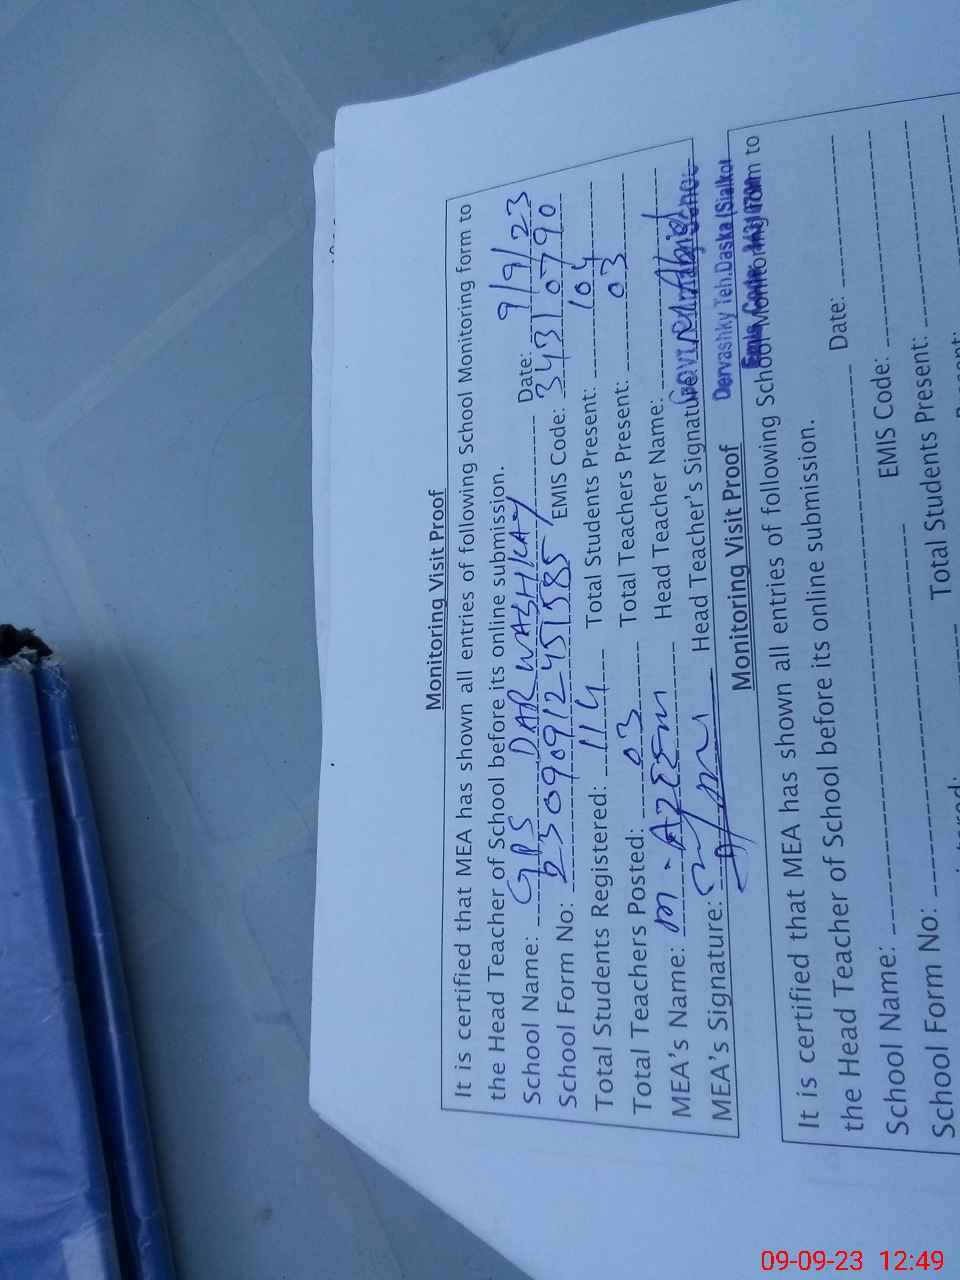 Monitoring Visit Proof
It is certified that MEA has shown all entries of following School Monitoring form to
the Head Teacher of School before its online submission.
School Name: GPS DARWASHKAY Date: 9/9/23
School Form No: 230909124515857 EMIS Code: 34310790
Total Students Registered: 114 Total Students Present: 104
Total Teachers Posted: 03 Total Teachers Present: 03
MEA's Name: M. AZEEM Head Teacher Name:
MEA's Signature: Head Teacher's Signature:
Dervashky Teh.Daska (Sialkot
Emis Code
Monitoring Visit Proof
It is certified that MEA has shown all entries of following School Monitoring form to
the Head Teacher of School before its online submission.
School Name: Date:
School Form No: EMIS Code:
Total Students Present:
09-09-23 12:49